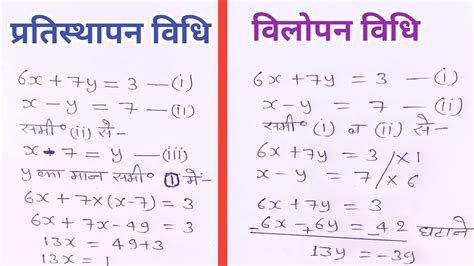 प्रतिस्थापन विधि
6x + 7y = 3 —(i)
x - y = 7 —(ii)
समी० (ii) से-
x - 7 = y —(iii)
y का मान समी० ① में-
6x + 7×(x-7) = 3
6x + 7x - 49 = 3
13x = 49+3
13x = 1
विलोपन विधि
6x + 7y = 3 —(i)
x - y = 7 —(ii)
समी० (i) व (ii) से-
6x + 7y = 3 / ×1
x - y = 7 / × 6
6x + 7y = 3
6x - 6y = 42 घटाने
13y = -39